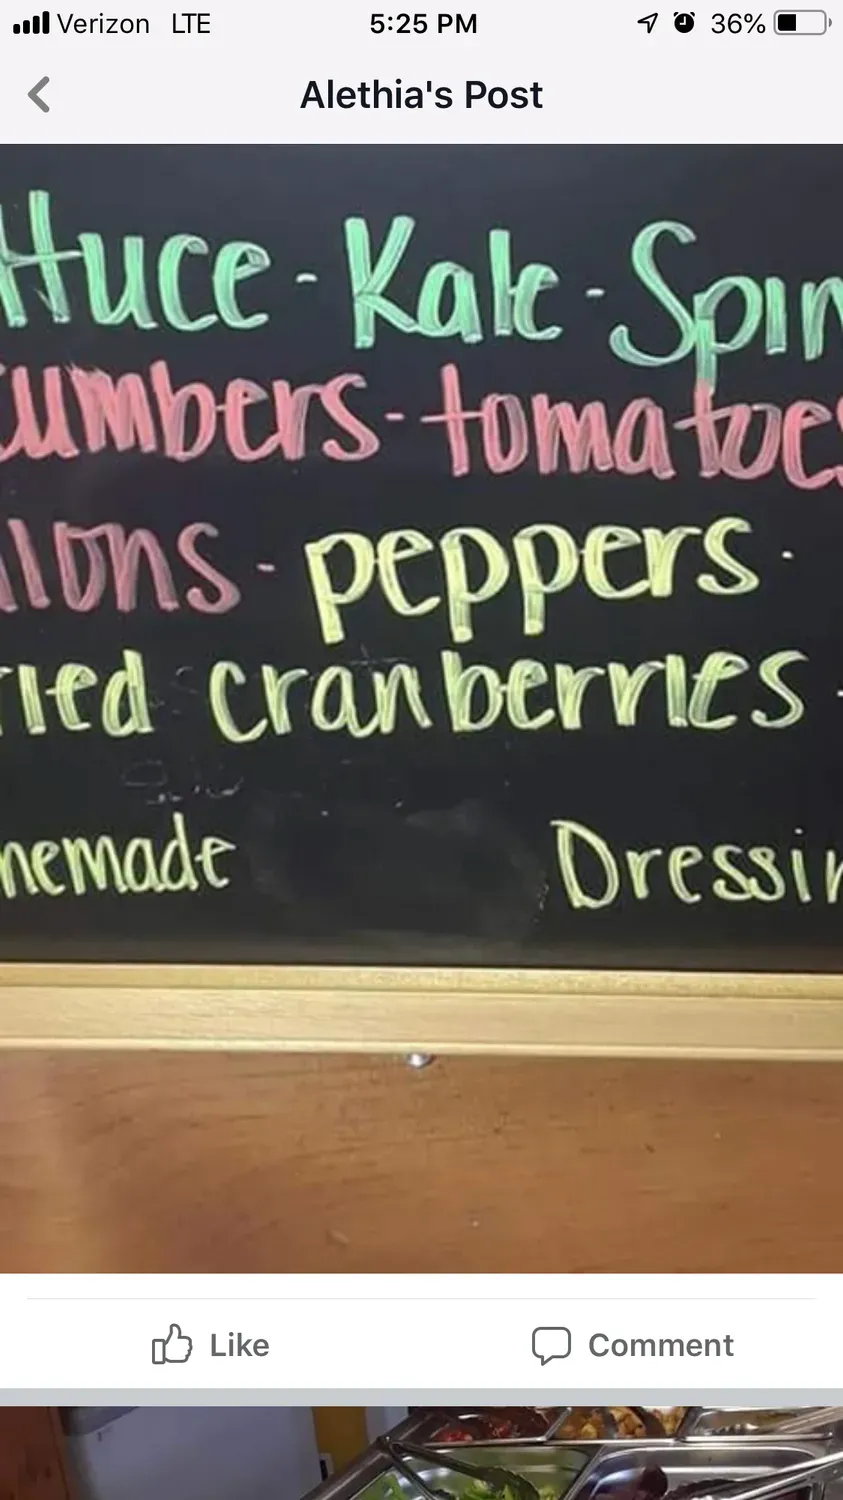 Verizon LTE 5:25 PM 36%
Alethia's Post
ttuce - Kale - Spin
cumbers - tomatoes
ions - peppers -
ried cranberries -
memade Dressin
Like Comment